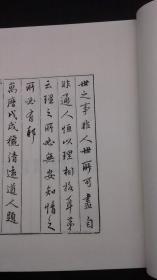 世之事非人世所可盡自
非通人恒以理相格耳第
云理之所必無安知情之
所必有邪
萬曆戊戌秋清遠道人題